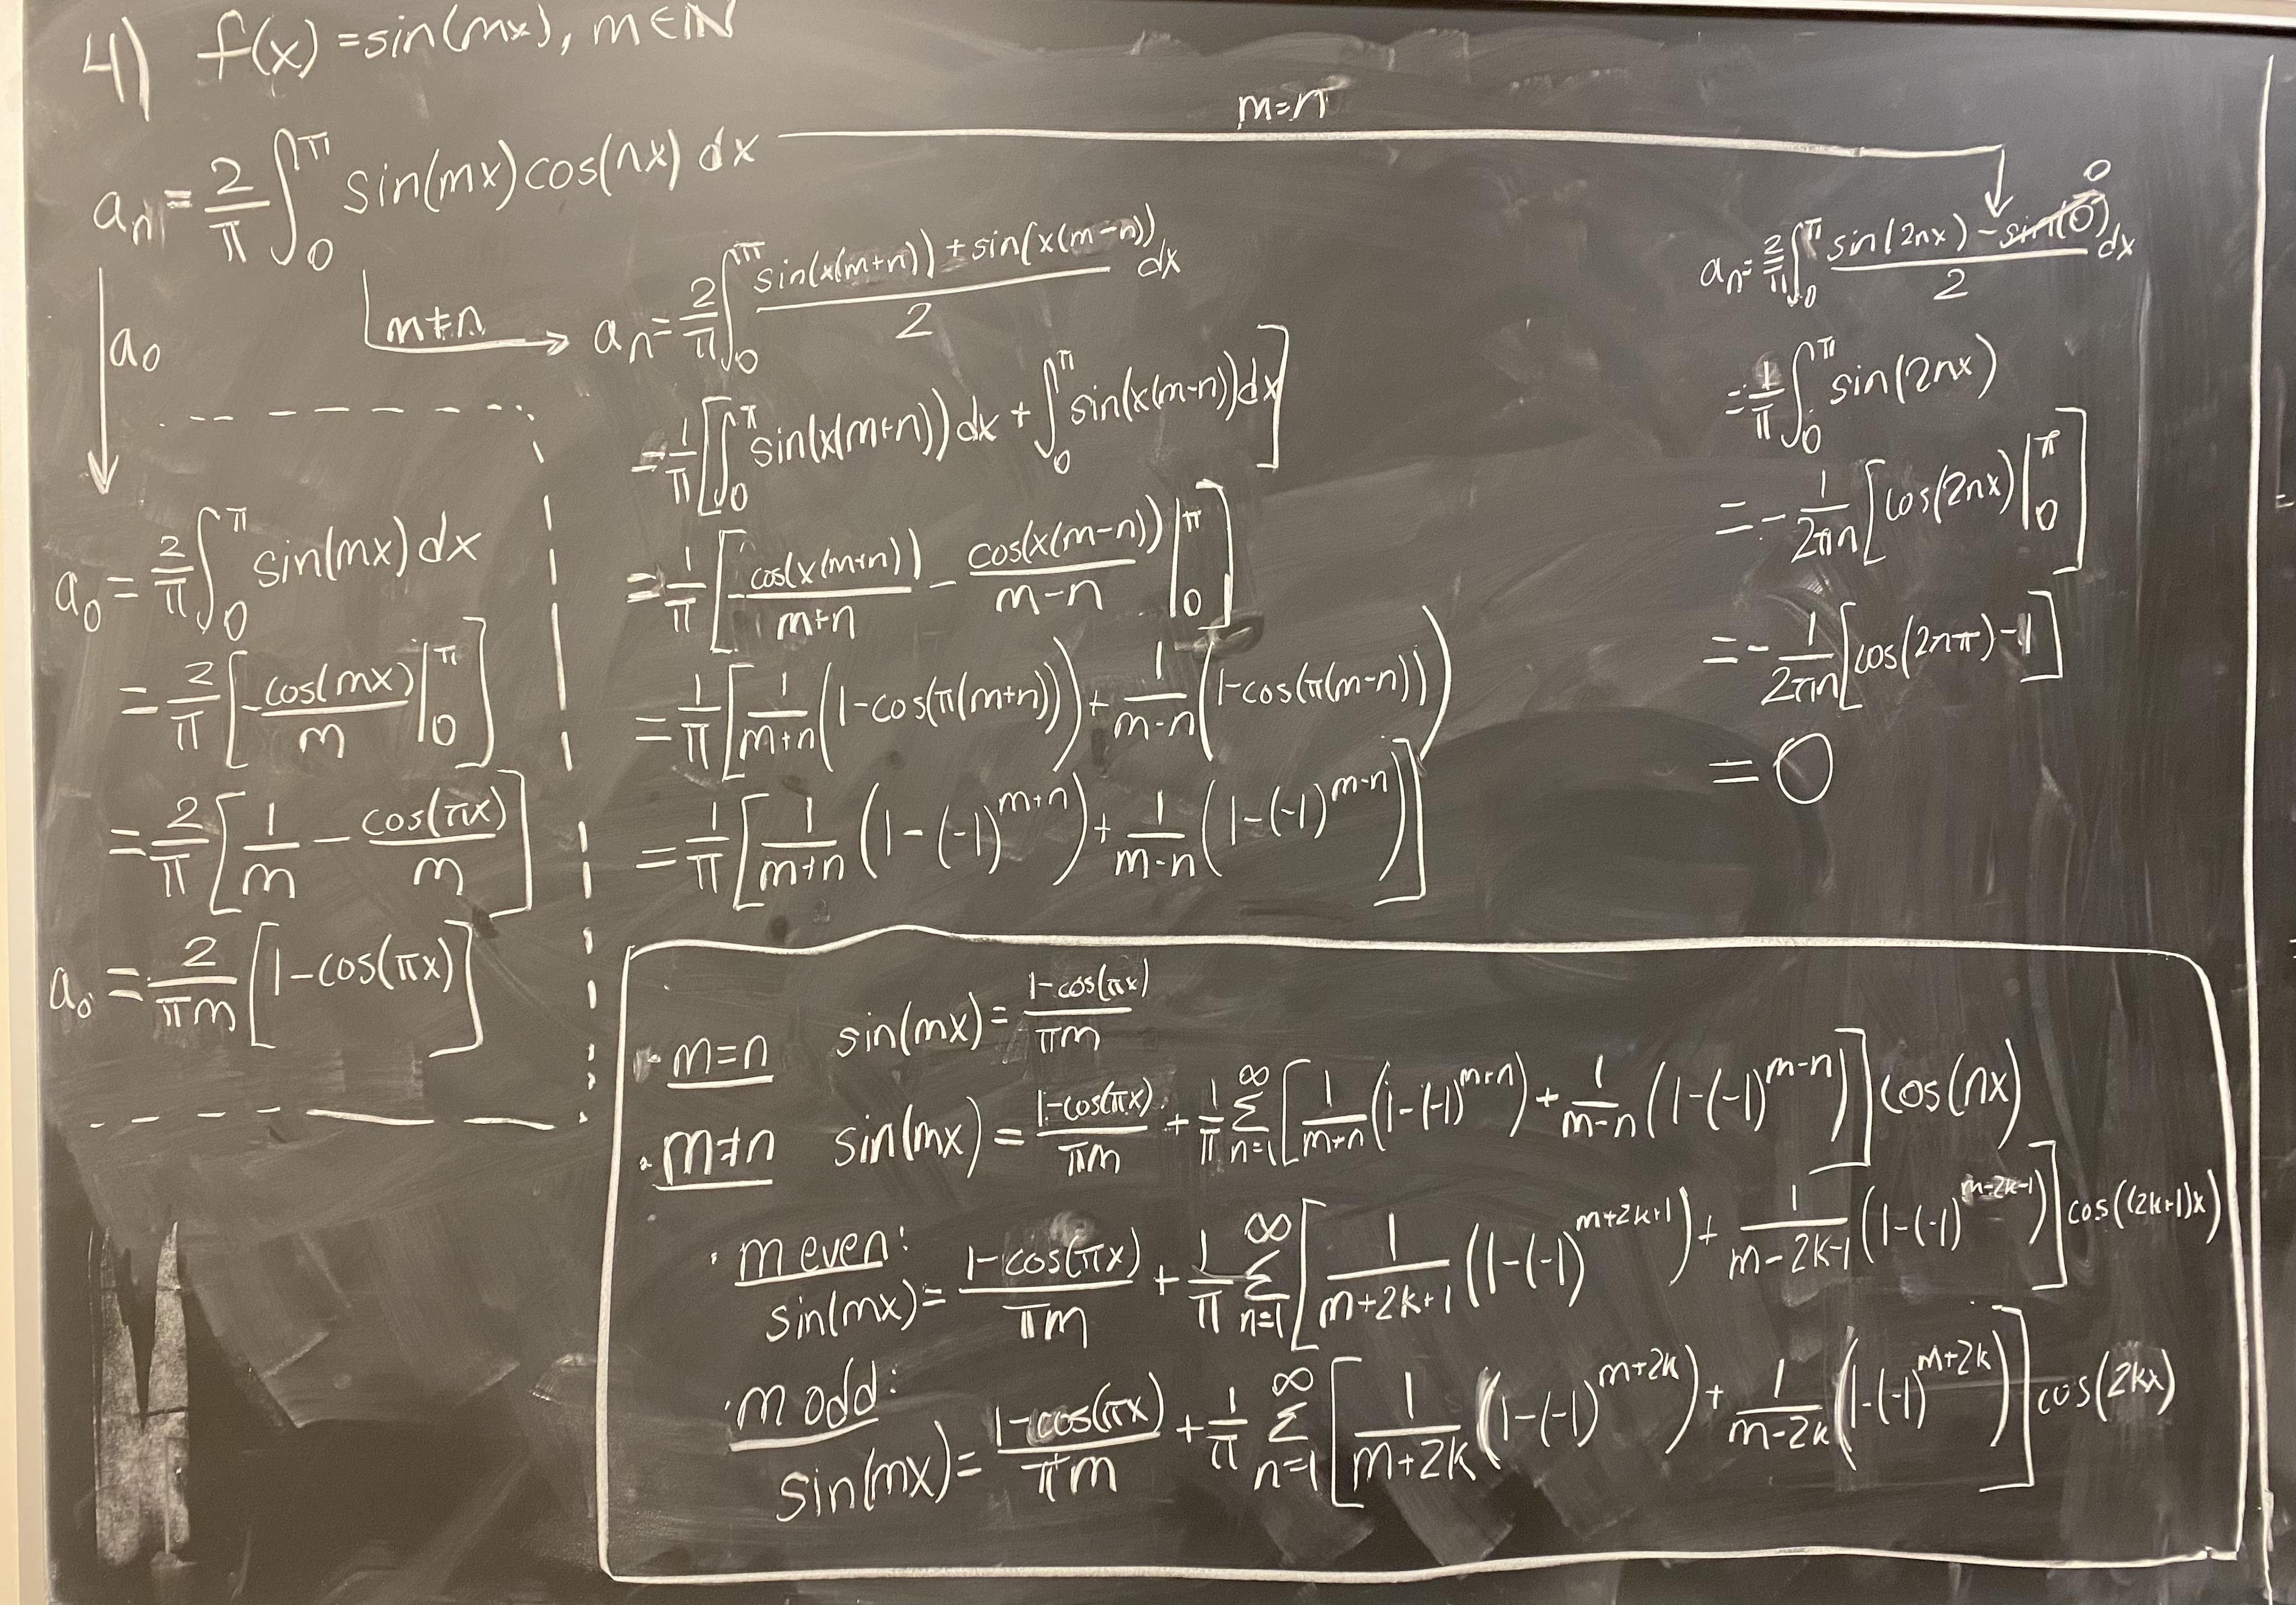 4) f(x) = sin(mx), m ∈ ℕ
m=n
aₙ = 2/π ∫₀^π sin(mx)cos(nx) dx
a₀
a₀ = 2/π ∫₀^π sin(mx) dx
= 2/π [-cos(mx)/m |₀^π]
= 2/π [1/m - cos(πx)/m]
a₀ = 2/(πm) [1-cos(πx)]
m≠n
aₙ = 2/π ∫₀^π (sin(x(m+n)) + sin(x(m-n)))/2 dx
= 1/π [∫₀^π sin(x(m+n)) dx + ∫₀^π sin(x(m-n)) dx]
= 1/π [-cos(x(m+n))/(m+n) - cos(x(m-n))/(m-n) |₀^π]
= 1/π [1/(m+n) (1-cos(π(m+n))) + 1/(m-n) (1-cos(π(m-n)))
= 1/π [1/(m+n) (1-(-1)^(m+n)) + 1/(m-n) (1-(-1)^(m-n))]
aₙ = 2/π ∫₀^π (sin(2nx) - sin(0))/2 dx
0
= 1/π ∫₀^π sin(2nx)
= -1/(2πn) [cos(2nx) |₀^π]
= -1/(2πn) [cos(2nπ) - 1]
= 0
· m=n sin(mx) = (1-cos(πx))/(πm)
· m≠n sin(mx) = (1-cos(πx))/(πm) + 1/π Σ_{n=1}^∞ [1/(m+n) (1-(-1)^(m+n)) + 1/(m-n) (1-(-1)^(m-n))] cos(nx)
· m even:
sin(mx) = (1-cos(πx))/(πm) + 1/π Σ_{n=1}^∞ [1/(m+2k+1) (1-(-1)^(m+2k+1)) + 1/(m-2k-1) (1-(-1)^(m-2k-1))] cos((2k+1)x)
· m odd:
sin(mx) = (1-cos(πx))/(πm) + 1/π Σ_{n=1}^∞ [1/(m+2k) (1-(-1)^(m+2k)) + 1/(m-2k) (1-(-1)^(m+2k))] cos(2kx)